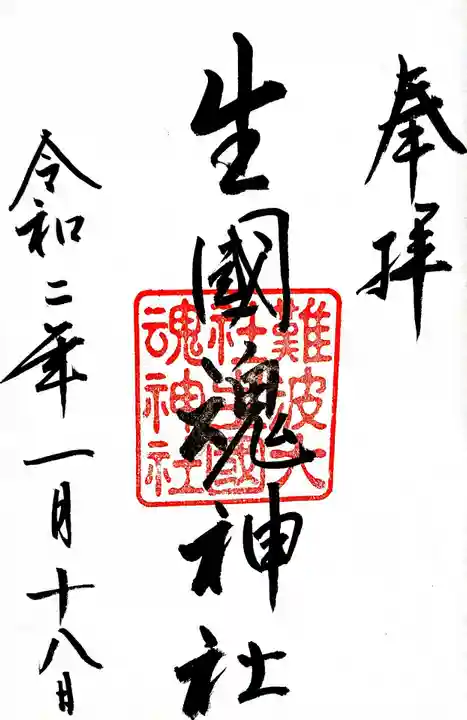 奉拝
生國魂神社
難波大
社生國
魂神社
令和二年一月十八日